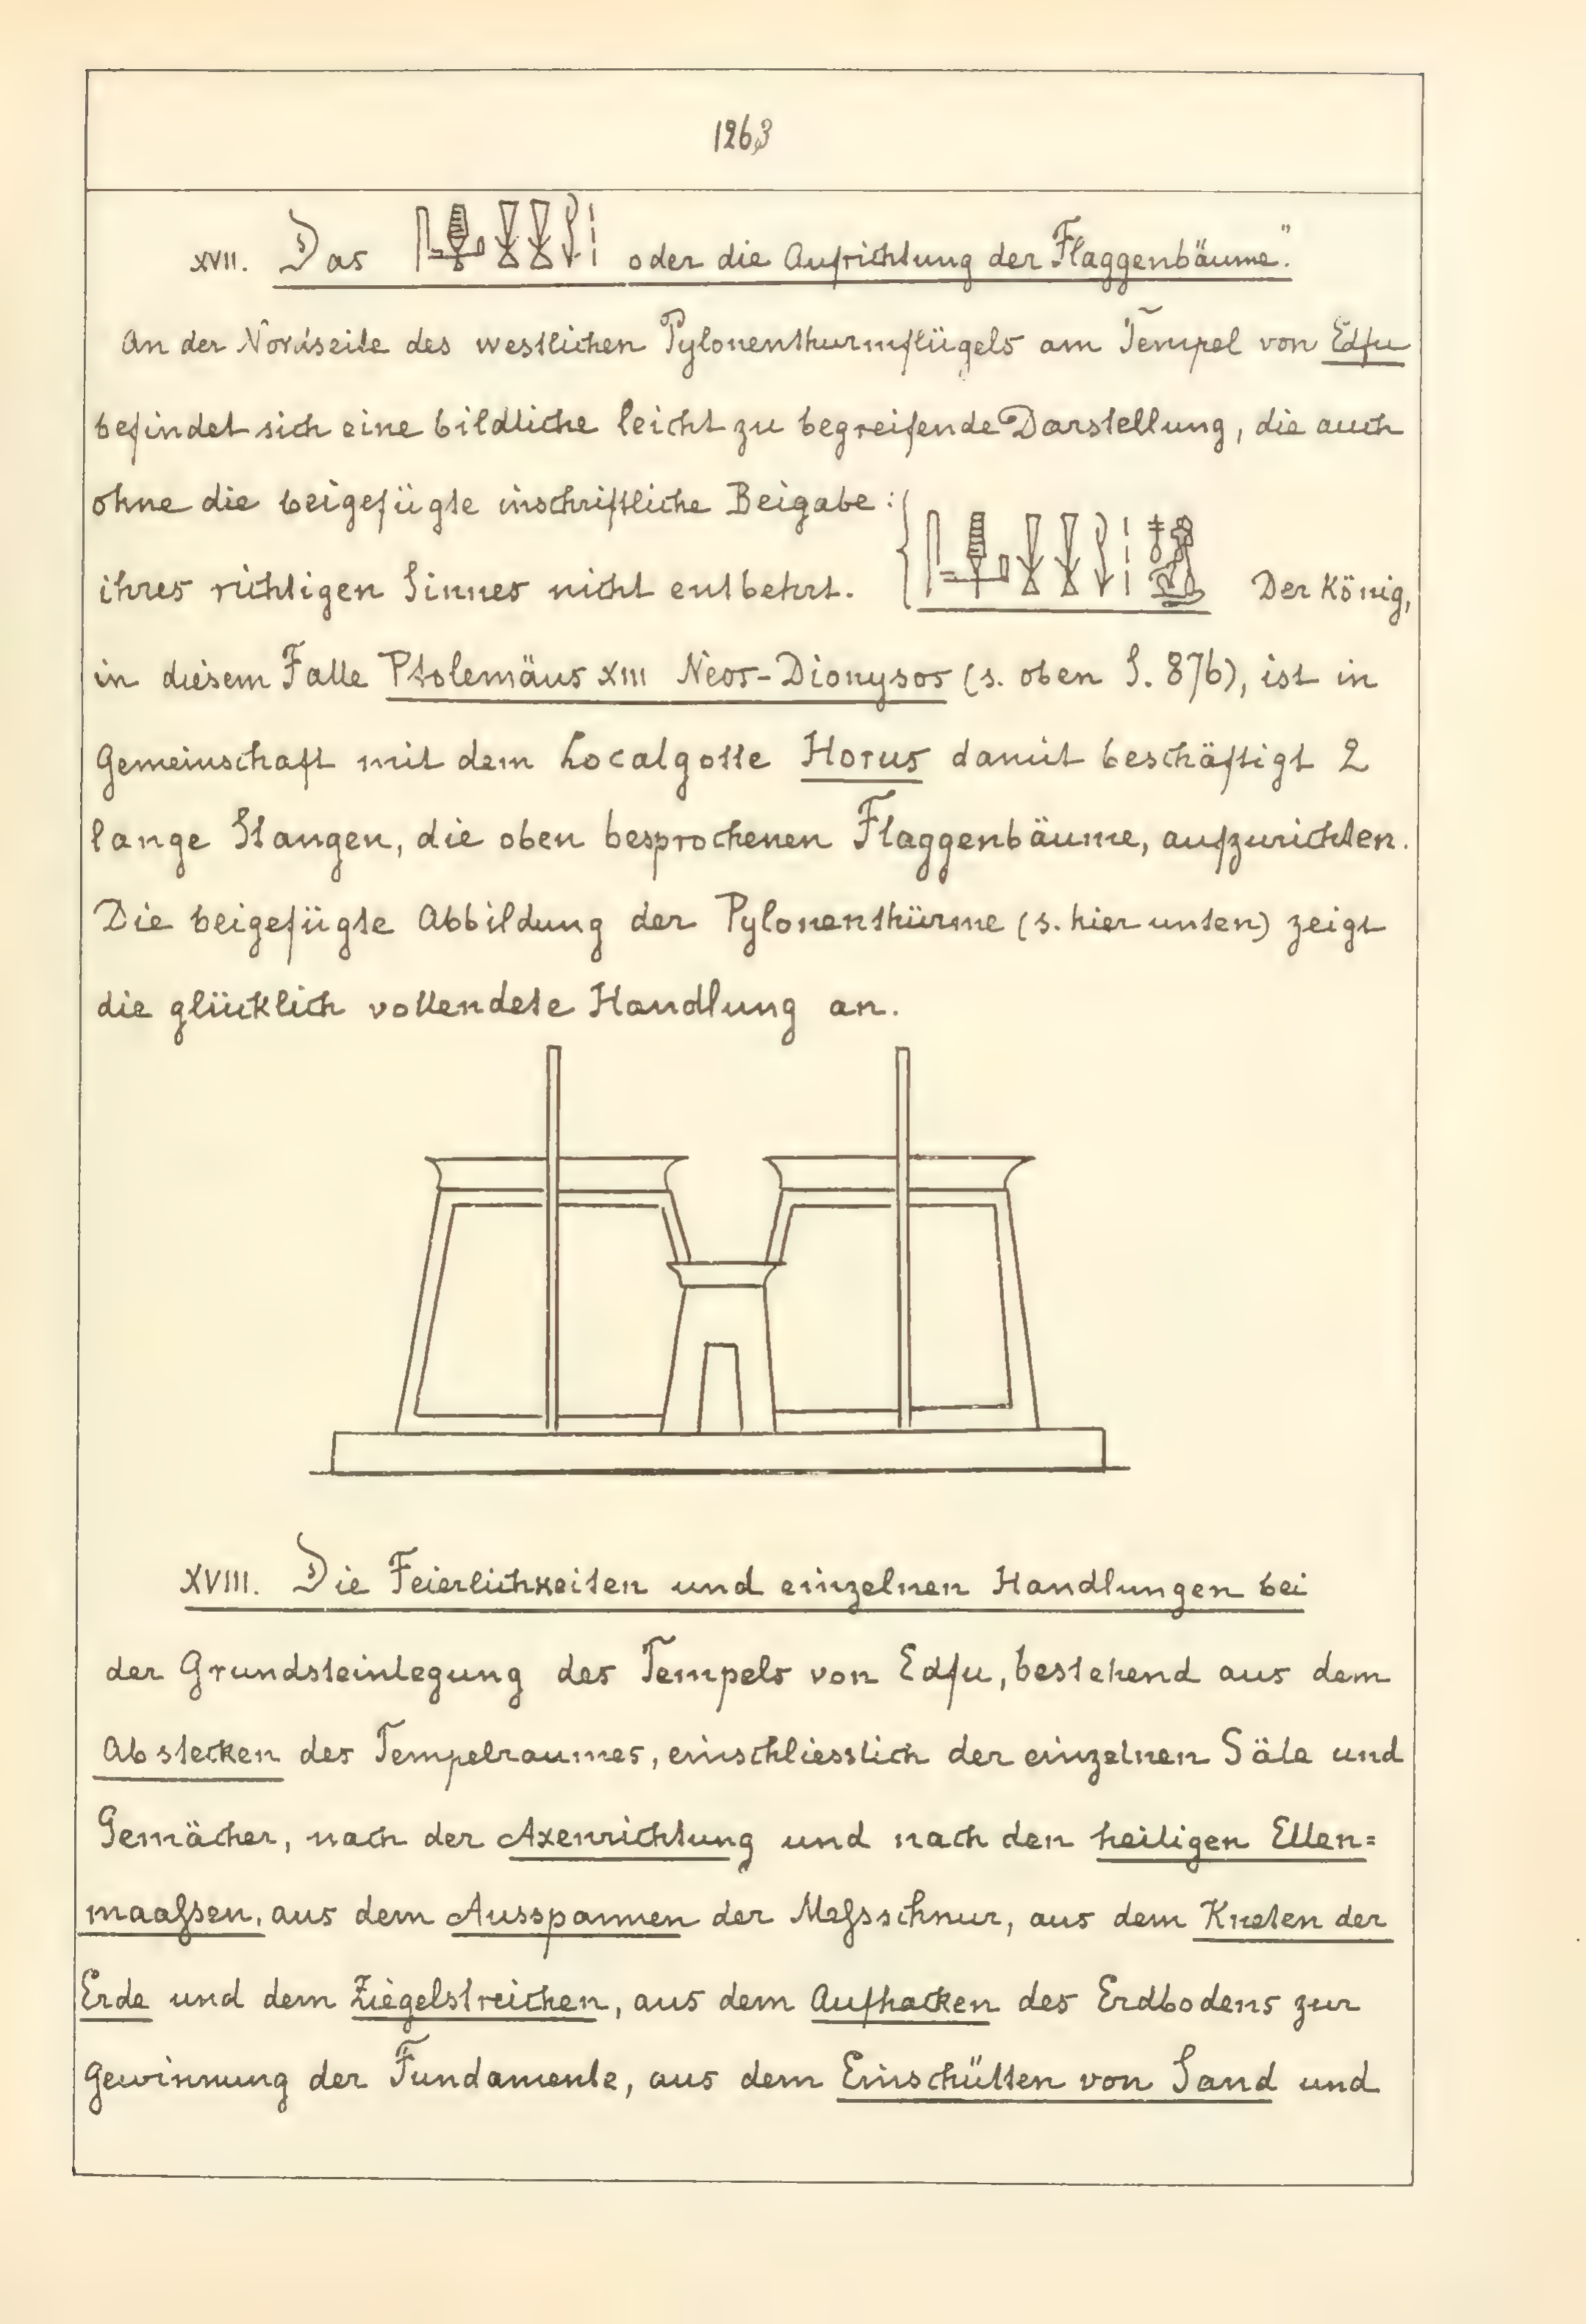 1263
XVII. Das oder die Aufrichtung der Flaggenbäume."
An der Nordseite des westlichen Pylonenthurmflügels am Tempel von Edfu
befindet sich eine bildliche leicht zu begreifende Darstellung, die auch
ohne die beigefügte inschriftliche Beigabe:
ihres richtigen Sinnes nicht entbehrt. Der König,
in diesem Falle Ptolemäus XIII Neos-Dionysos (s. oben S. 876), ist in
Gemeinschaft mit dem Localgotte Horus damit beschäftigt 2
lange Stangen, die oben besprochenen Flaggenbäume, aufzurichten.
Die beigefügte Abbildung der Pylonenthürme (s. hier unten) zeigt
die glücklich vollendete Handlung an.
XVIII. Die Feierlichkeiten und einzelnen Handlungen bei
der Grundsteinlegung des Tempels von Edfu, bestehend aus dem
Abstecken des Tempelraumes, einschliesslich der einzelnen Säle und
Gemächer, nach der Axenrichtung und nach den heiligen Ellen=
maaßsen, aus dem Ausspannen der Meßschnur, aus dem Kneten der
Erde und dem Ziegelstreichen, aus dem Aufhacken des Erdbodens zur
Gewinnung der Fundamente, aus dem Einschütten von Sand und